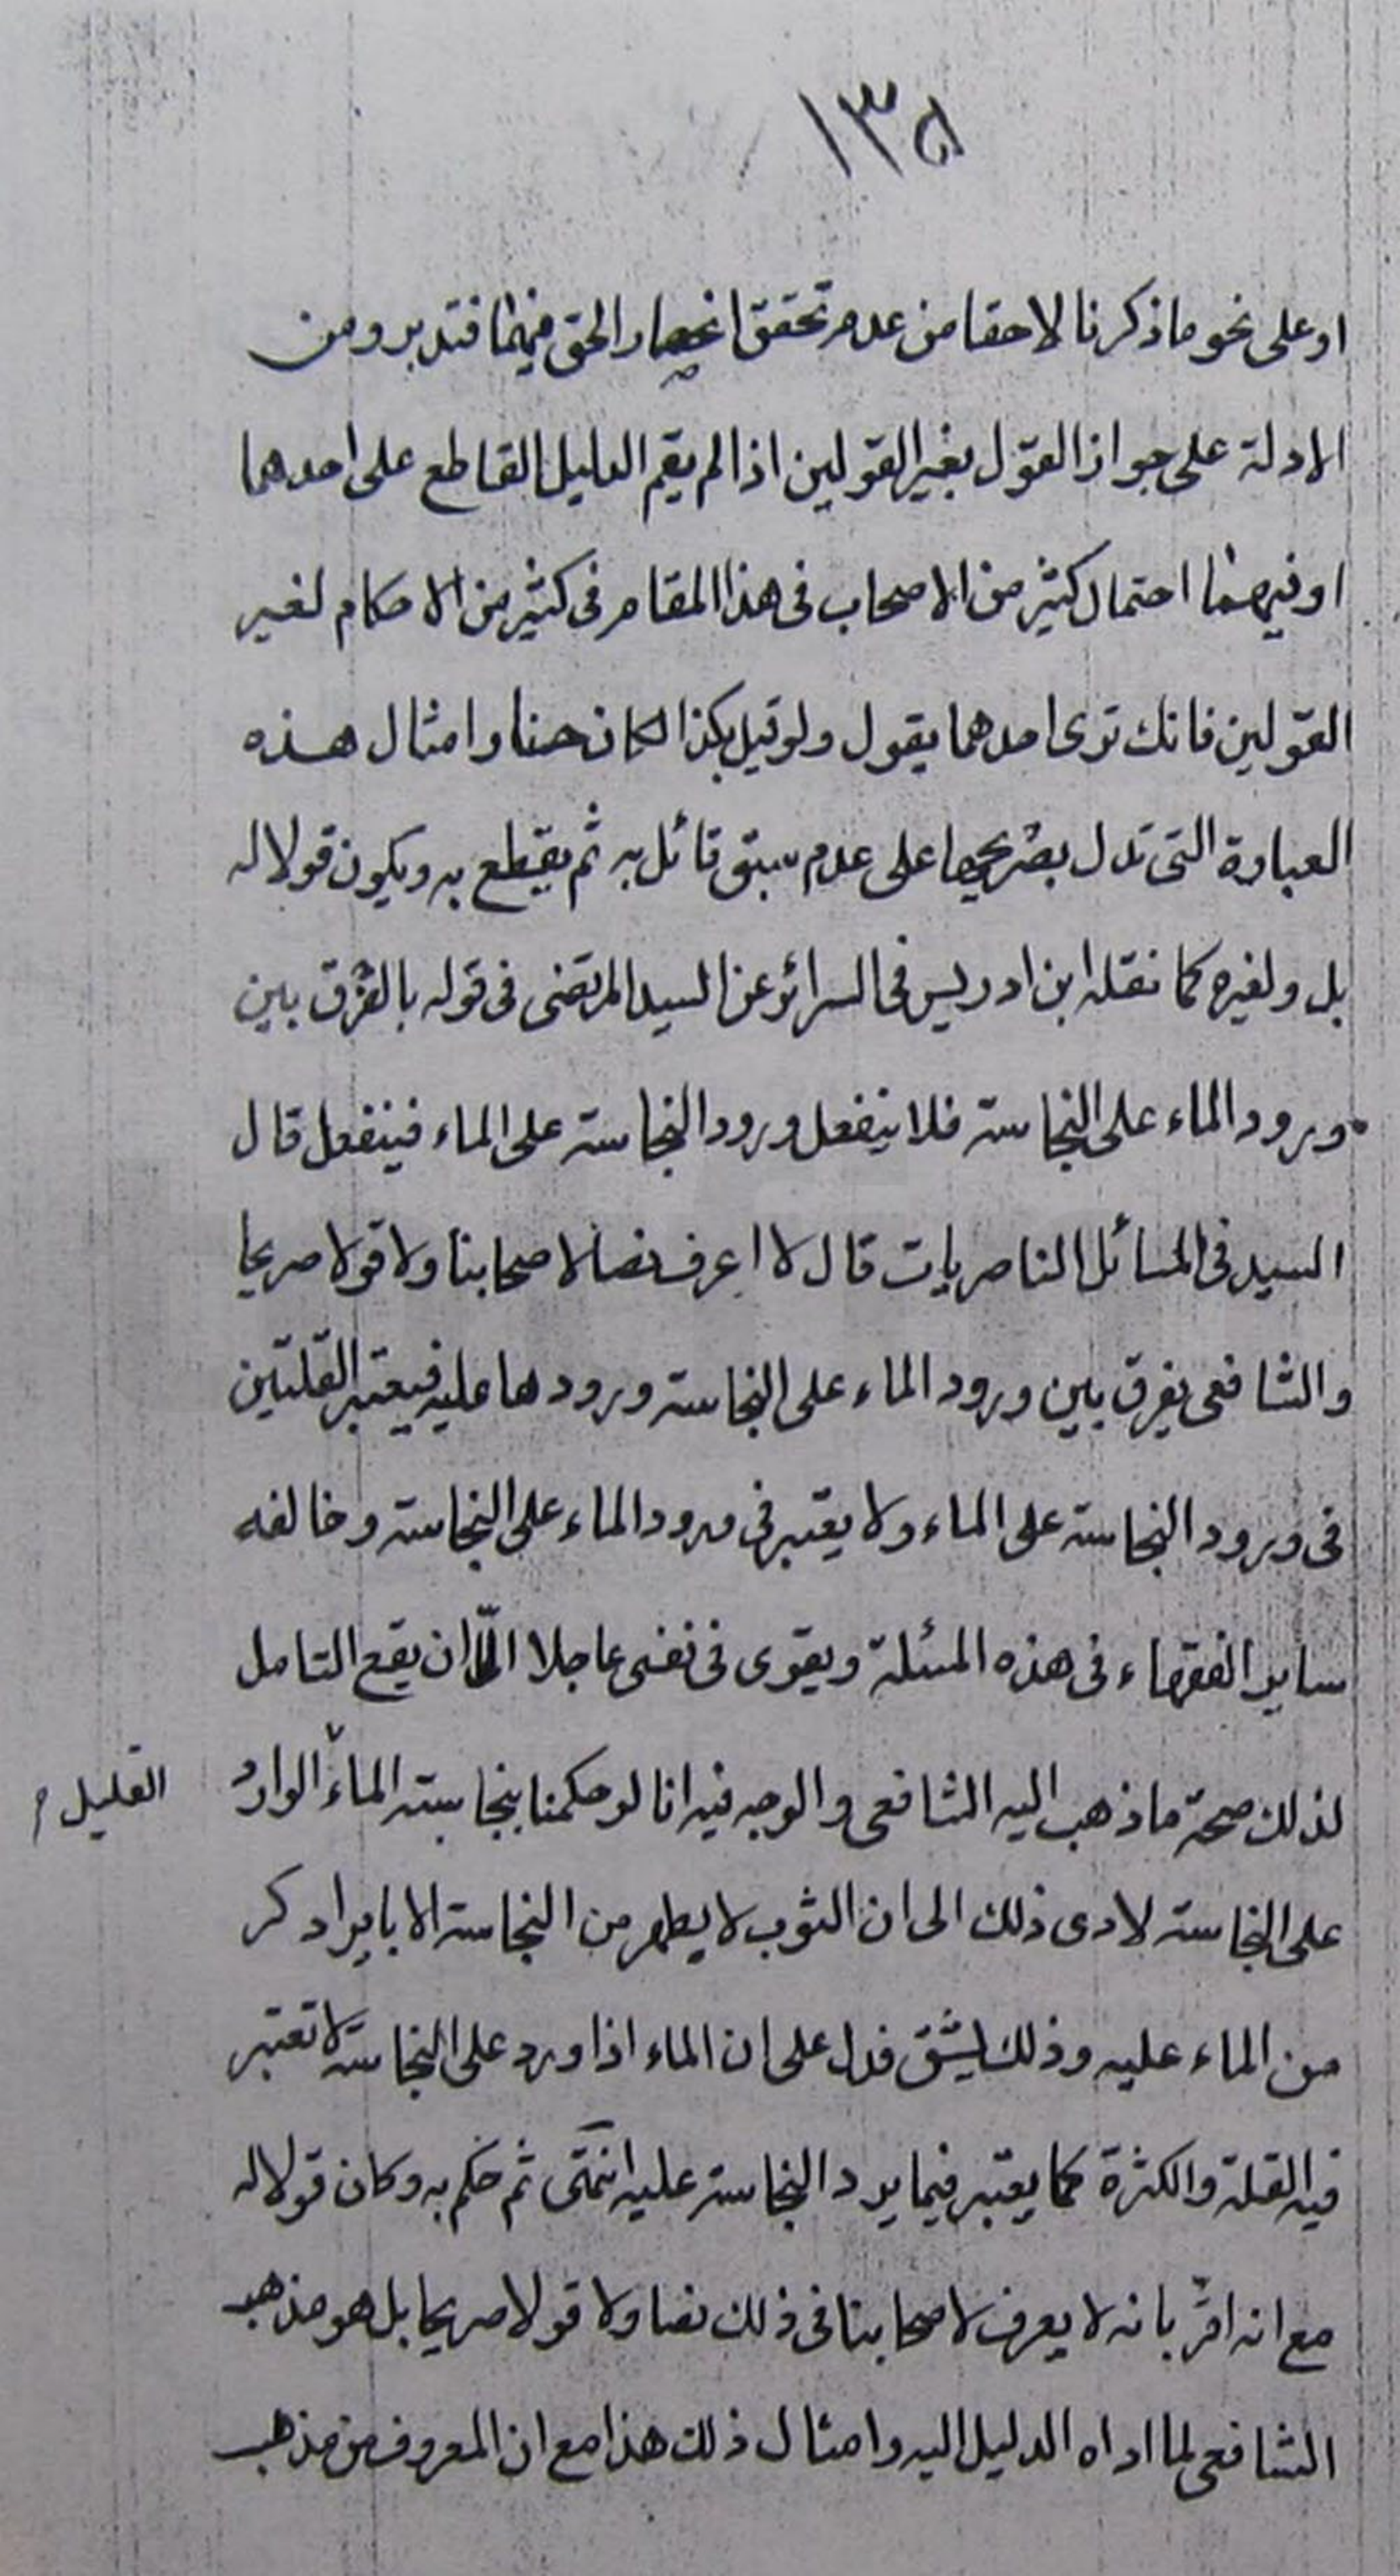 ١٣٥
او على نحو ما ذكرنا لاحقا من عدم تحقق انحصار الحق فيهما فتدبر ومن
الادلة على جواز القول بغير القولين اذا لم يقم الدليل القاطع على احدهما
او فيهما احتمال كثير من الاصحاب فى هذا المقام فى كثير من الاحكام لغير
القولين فانك ترى احدهما يقول ولو قيل بكذا لكان حسنا وامثال هذه
العبارة التى تدل بصريحها على عدم سبق قائل به ثم يقطع به ويكون قولا له
بل ولغيره كما نقله ابن ادريس فى السرائر عن السيد المرتضى فى قوله بالفرق بين
ورود الماء على النجاسة فلا ينفعل وورود النجاسة على الماء فينفعل قال
السيد فى المسائل الناصريات قال لا اعرف نصا لاصحابنا ولا قولا صريحا
والشافعى يفرق بين ورود الماء على النجاسة وورودها عليه فيعتبر القلتين
فى ورود النجاسة على الماء ولا يعتبر فى ورود الماء على النجاسة وخالفه
ساير الفقهاء فى هذه المسئلة ويقوى فى نفسى عاجلا الى ان يقع التامل
لذلك صحة ما ذهب اليه الشافعى والوجه فيه انا لو حكمنا بنجاسة الماء الوارد
القليل
على النجاسة لادى ذلك الى ان الثوب لا يطهر من النجاسة الا بايراد كر
من الماء عليه وذلك يشق فدل على ان الماء اذا ورد على النجاسة لا تعتبر
فيه القلة والكثرة كما يعتبر فيما يرد النجاسة عليه انتهى ثم حكم به وكان قولا له
مع انه اقر بانه لا يعرف لاصحابنا فى ذلك نصا ولا قولا صريحا بل هو مذهب
الشافعى لما اداه الدليل اليه وامثال ذلك هذا مع ان المعروف من مذهب